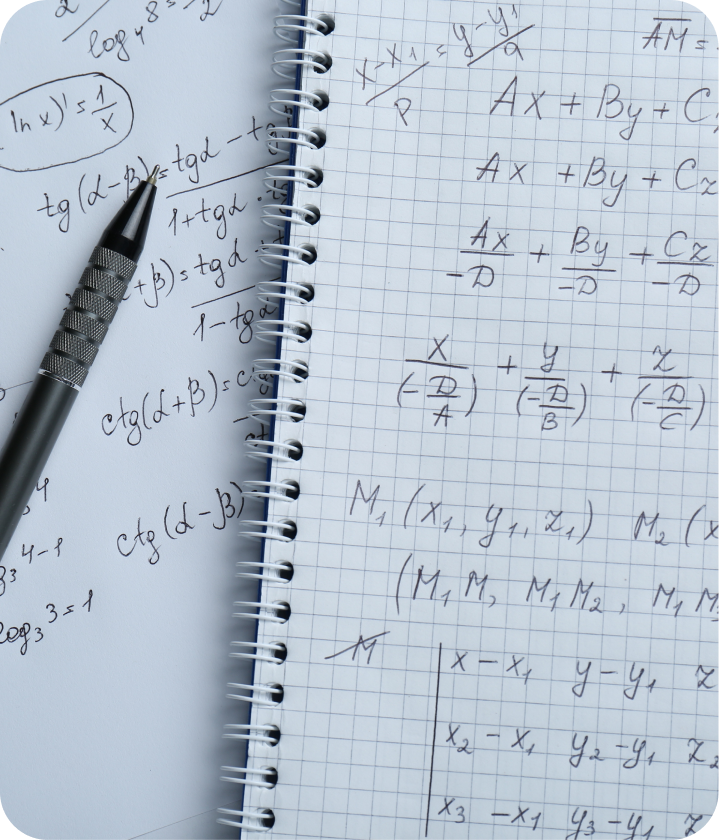 log₄ 8 =
ln x)' = 1/x
tg(α-β) = tgα - tg
1+tgα ·
+β) = tgα
1 - tgα
ctg(α+β) =
ctg(α-β)
4
4-1
log₃ 3 = 1
x - x₁ / p = y - y₁ / a
AM =
Ax + By + C
Ax + By + Cz
Ax/-D + By/-D + Cz/-D
x/(-D/A) + y/(-D/B) + z/(-D/C)
M₁ (x₁, y₁, z₁) M₂ (x
(M₁M, M₁M₂, M₁M
M
x - x₁ y - y₁ z
x₂ - x₁ y₂ - y₁ z₂
x₃ - x₁ y₃ - y₁ z